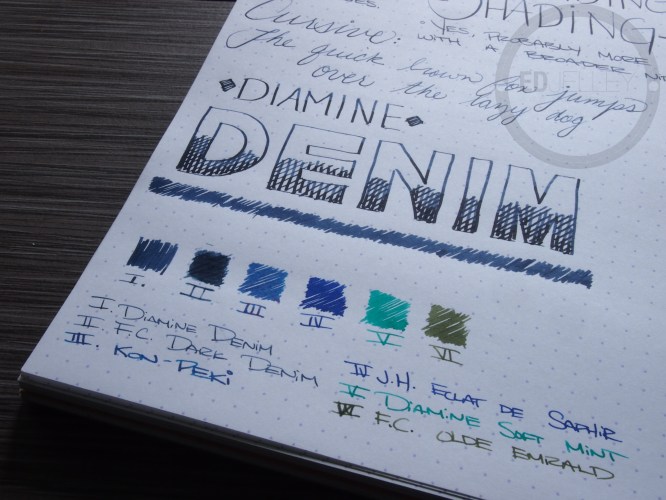 SHADING
YES, PROBABLY MORE
WITH A BROADER
Cursive:
The quick brown fox jumps
over the lazy dog
ED JELLEY
DIAMINE
DENIM
I. II III IV V VI
I. DIAMINE DENIM
II. F.C. DARK DENIM
III. KON-PEKI
IV J.H. ECLAT DE SAPHIR
V DIAMINE SOFT MINT
VI F.C. OLDE EMRALD